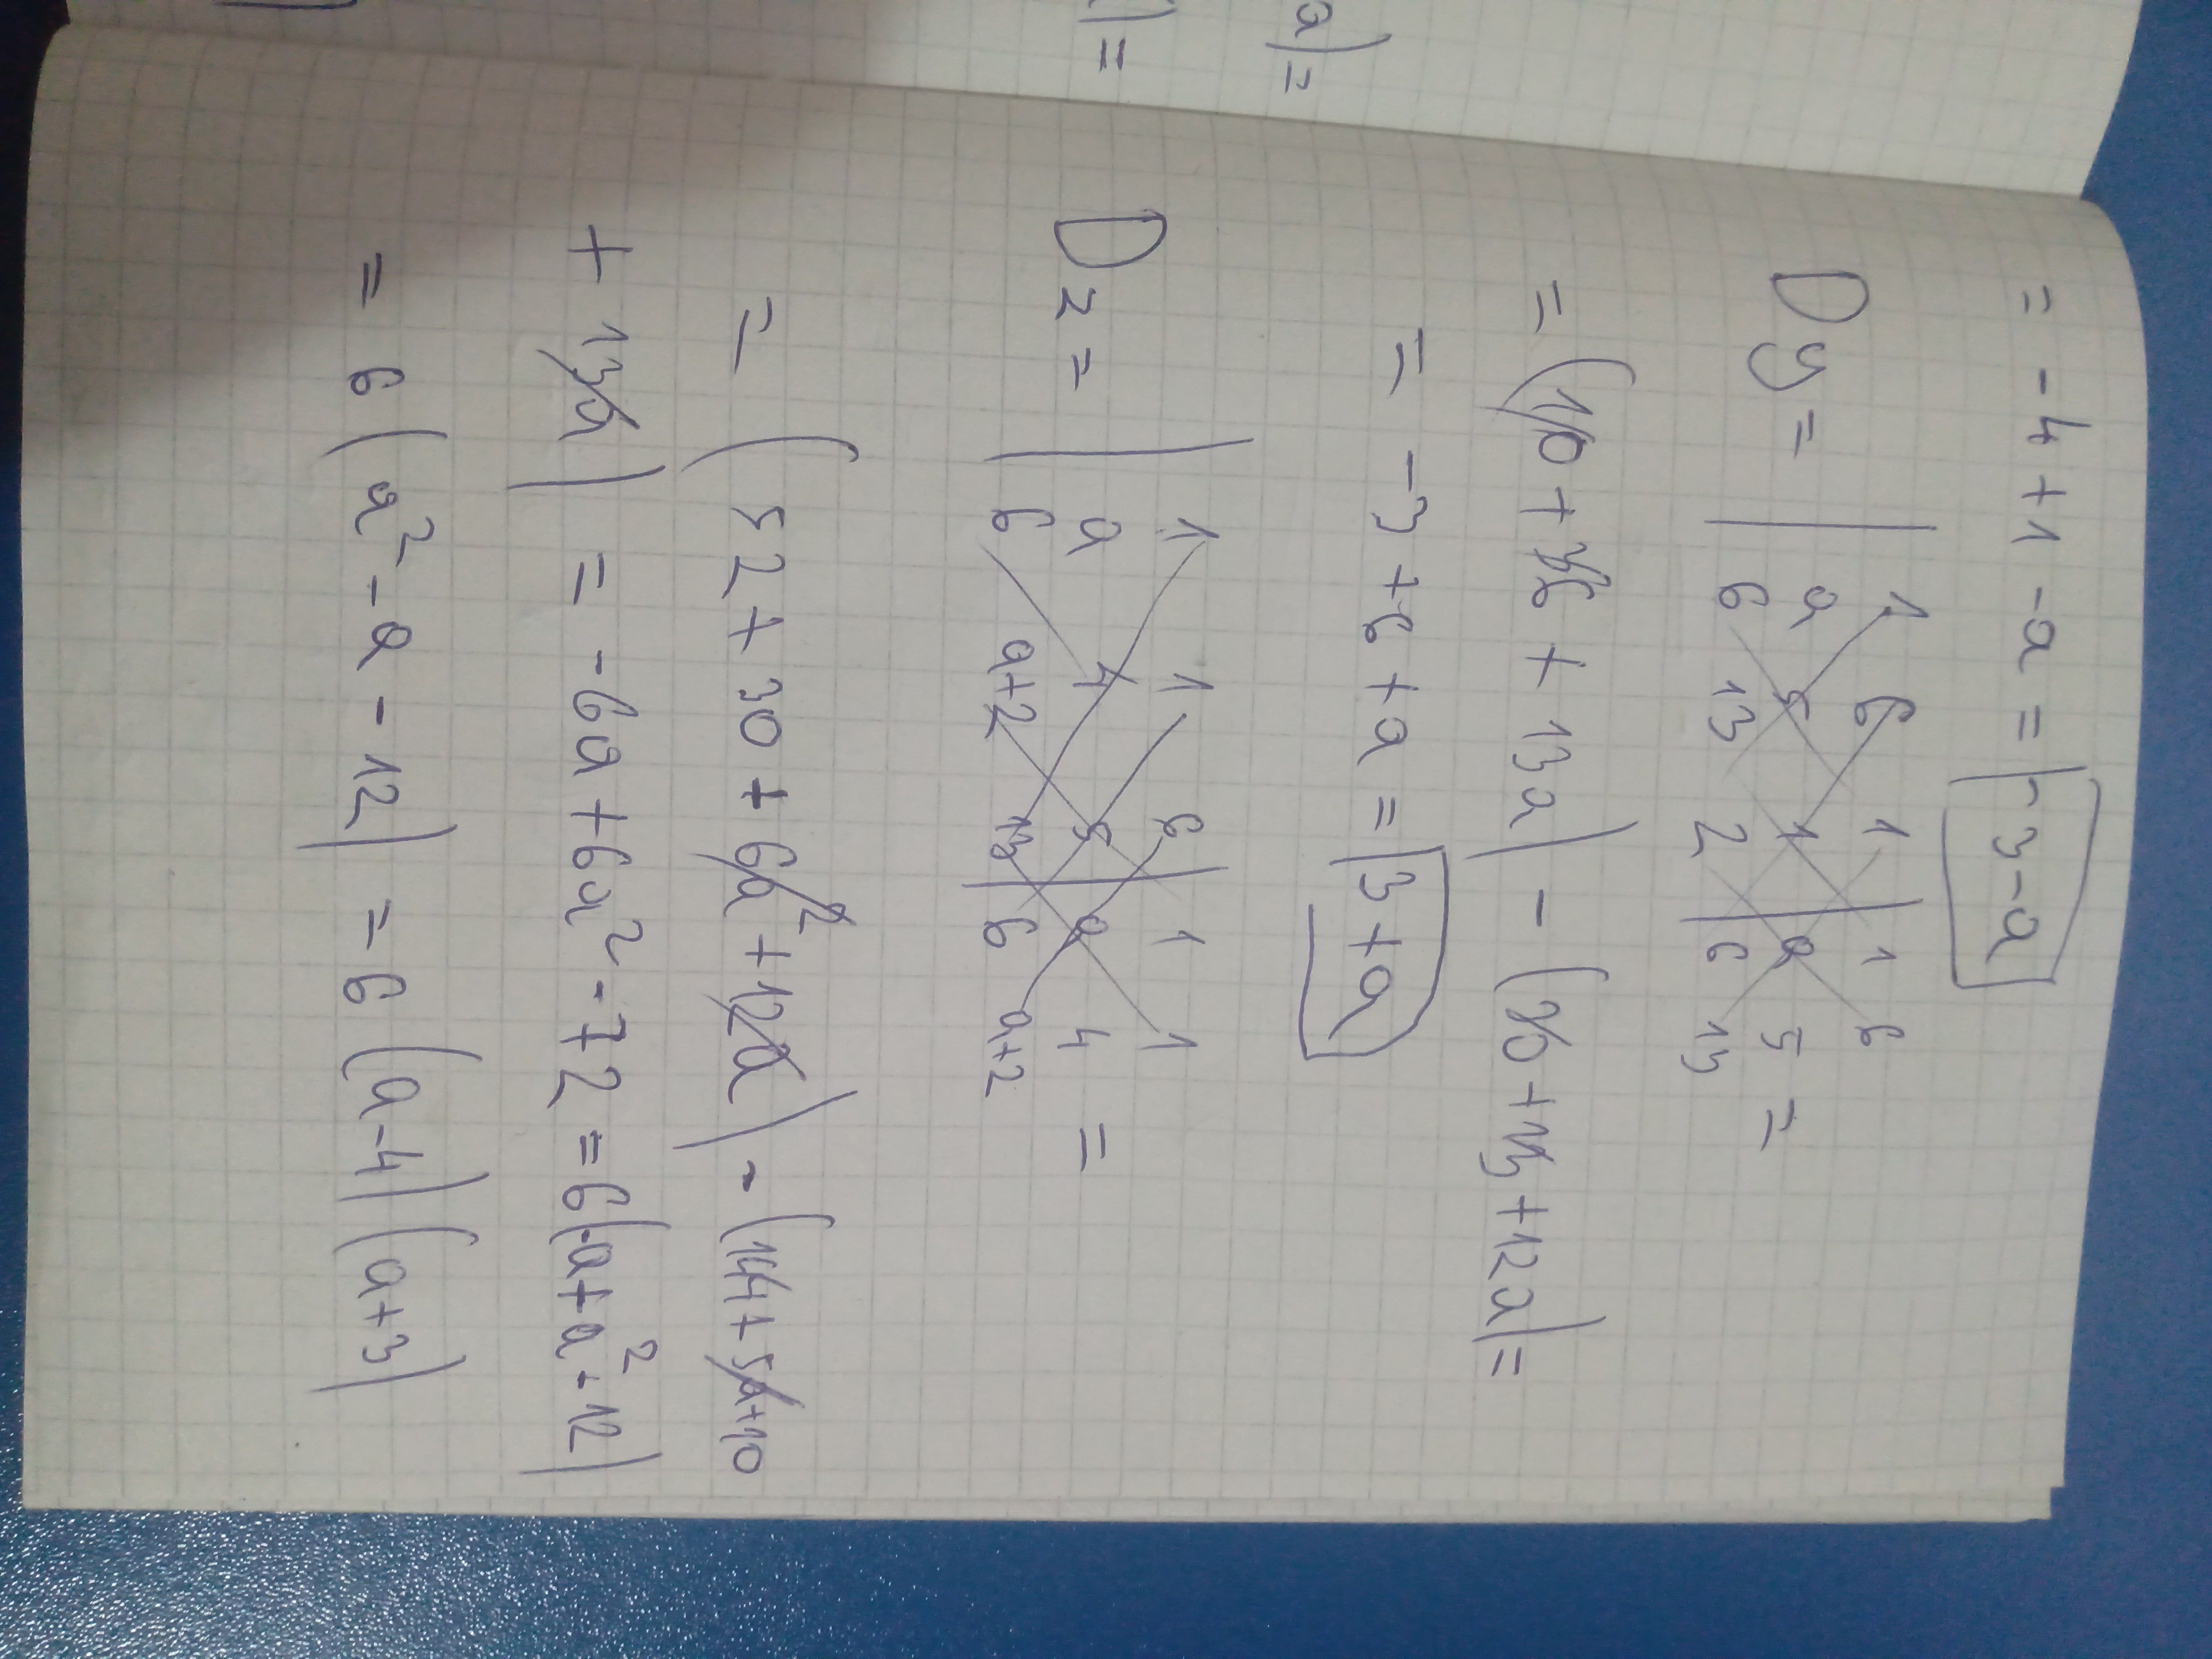 = -4 + 1 - a = -3-a
Dy = | 1 6 1 | 1 6
a 5 1 | a 5 =
6 13 2 | 6 13
= (10 + 36 + 13a) - (30 + 13 + 12a) =
= -3 + 6 + a = 3+a
Dz = | 1 1 6 | 1 1
a 4 5 | a 4 =
6 a+2 13 | 6 a+2
= (52 + 30 + 6a² + 12a) - (144 + 5a+10
+ 13a) = -6a + 6a² - 72 = 6(-a + a² - 12)
= 6(a² - a - 12) = 6(a-4)(a+3)
a) =
) =